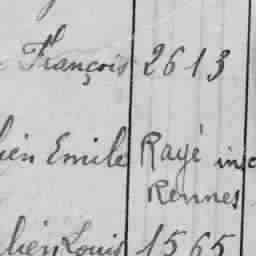 François 2613
ien Emile Rayé insc
Rennes
lien Louis 1565